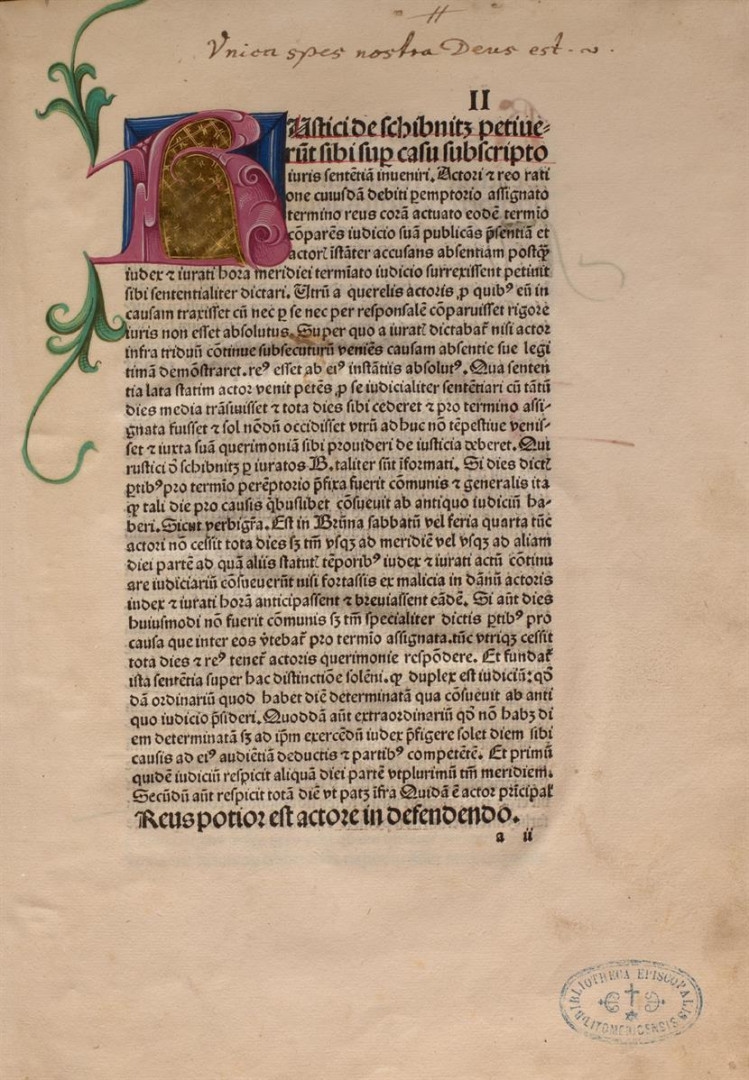 Vnica spes nostra Deus est.
II
RUstici de schibnitz petiue-
rūt sibi sup casu subscripto
iuris sentētiā inueniri. Actori ⁊ reo rati
one cuiusdā debiti ꝑemptorio assignato
termino reus corā actuato eodē termīo
cōparēs iudicio suā publicās p̄sentiā et
actorꝭ īstāter accusans absentiam postqꝫ
iudex ⁊ iurati hora meridiei termīato iudicio surrexissent petiuit
sibi sententialiter dictari. Utrū a querelis actoris, ꝓ quibꝰ eū in
causam traxisset cū nec ꝑ se nec per responsalē cōparuisset rigore
iuris non esset absolutus. Super quo a iuratꝭ dictabat᷑ nisi actor
infra triduū cōtinue subsecuturū veniēs causam absentie sue legi
timā demōstraret. reꝰ esset ab eiꝰ instātiis absolutꝰ. Qua senten
tia lata statim actor venit petēs, ꝓ se iudicialiter sentētiari cū tātū
dies media trāsiuisset ⁊ tota dies sibi cederet ⁊ pro termino assi-
gnata fuisset ⁊ sol nōdū occidisset vtrū adhuc nō tēpestiue venis-
set ⁊ iuxta suā querimoniā sibi prouideri de iusticia deberet. Qui
rustici ō schibnitz ꝑ iuratos B. taliter sūt īformati. Si dies dictꝭ
ꝑtibꝰ pro termīo perēptorio p̄fixa fuerit cōmunis ⁊ generalis ita
ꝙ tali die pro causis q̄buslibet cōsueuit ab antiquo iudiciū ha-
beri. Sicut verbigr̄a. Est in Brūna sabbatū vel feria quarta tūc
actori nō cessit tota dies sꝫ tm̄ vsqꝫ ad meridiē vel vsqꝫ ad aliam
diei partē ad quā aliis statutꝭ tēporibꝰ iudex ⁊ iurati actū cōtinu
are iudiciariū cōsueuerūt nisi fortassis ex malicia in dānū actoris
iudex ⁊ iurati horā anticipassent ⁊ breuiassent eādē. Si aūt dies
huiusmodi nō fuerit cōmunis sꝫ tm̄ specialiter dictis ꝑtibꝰ pro
causa que inter eos v̄tebat᷑ pro termīo assignata. tūc vtriqꝫ cessit
tota dies ⁊ reꝰ tenet᷑ actoris querimonie respōdere. Et fundat᷑
ista sentētia super hac distinctiōe solēni. ꝙ duplex est iudiciū: qđ
dā ordinariū quod habet diē determinatā qua cōsueuit ab anti
quo iudicio p̄sideri. Quoddā aūt extraordinariū qđ nō habꝫ di
em determinatā sꝫ ad ip̄m exercēdū iudex p̄figere solet diem sibi
causis ad eiꝰ audiētiā deductis ⁊ partibꝰ competētē. Et primū
quidē iudiciū respicit aliquā diei partē vtplurimū tm̄ meridiem.
Secūdū aūt respicit totā diē vt patꝫ īfra Quidā ē actor prīcipal᷑
Reus potior est actore in defendendo.
a ii
BIBLIOTHECA EPISCOPALIS
LITOMERICENSIS